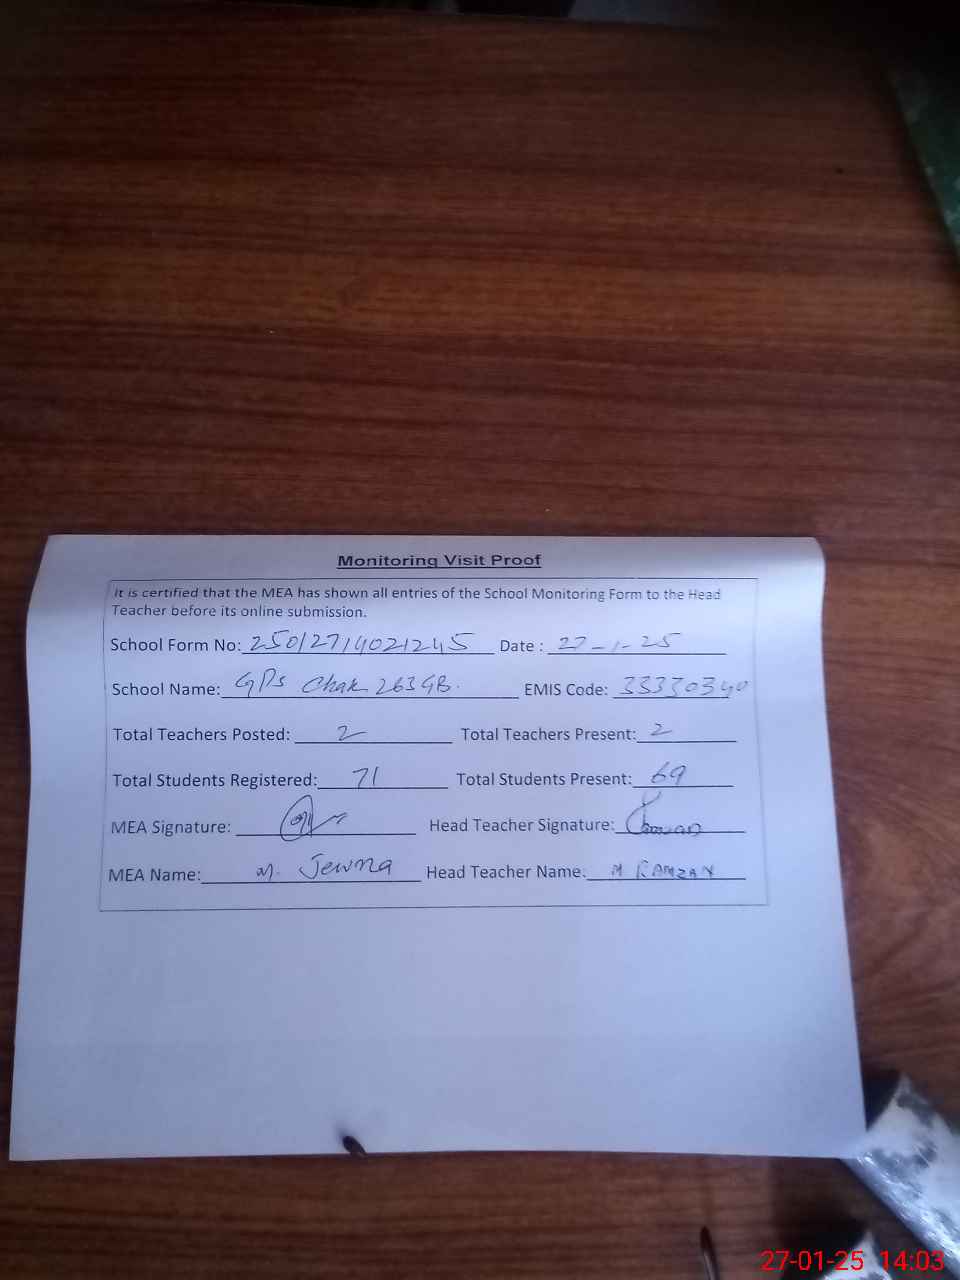 Monitoring Visit Proof
It is certified that the MEA has shown all entries of the School Monitoring Form to the Head
Teacher before its online submission.
School Form No: 25012714021245 Date : 27-1-25
School Name: GPS Chak 263 GB. EMIS Code: 33330340
Total Teachers Posted: 2 Total Teachers Present: 2
Total Students Registered: 71 Total Students Present: 69
MEA Signature: Head Teacher Signature:
MEA Name: M. Head Teacher Name: M RAMZAN
27-01-25 14:03